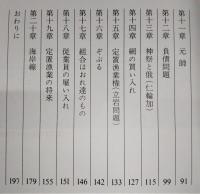 第十一章 元師 91
第十二章 負債問題 99
第十三章 神祭と俄(仁輪加) 115
第十四章 網の買い入れ 127
第十五章 定置漁業権(立岩問題) 133
第十六章 ぞぶる 142
第十七章 組合はおれ達のもの 146
第十八章 従業員の雇い入れ 151
第十九章 定置漁業の将来 155
第二十章 海岸線 179
おわりに 197